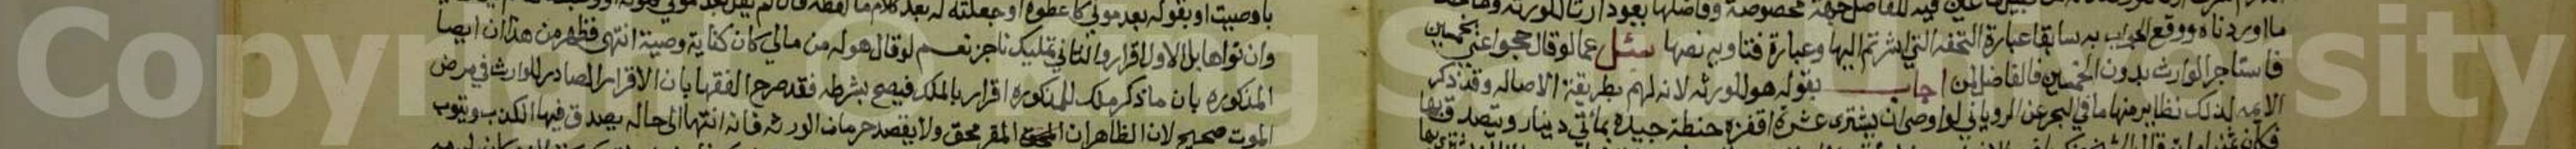 ما اوردناه ووقع الجواب به سابقا عبارة التحفة التي اشرتم اليها وعبارة فتاويه نصها سئل عما لو قال حجوا عني بخمسين
فاستاجر الوارث بدون الخمسين فالفاضل لمن اجاب بقوله هو للورثه لانه لهم بطريقة الاصاله وقد ذكر
الايمه لذلك نظاير منها ما في البحر عن الروياني لو اوصى ان يشترى عشرة اقفزه حنطة جيده بمائتي دينار ويتصدق بها
باوصيت او بقوله بعد موتي كاعطوه او جعلته له بعد
وان نواها بل الاول اقرار والثاني تمليك ناجز نعم لو قال هو له من مالي كان كناية وصية انتهى فظهر من هذا ان ايصا
المذكوره بان ما ذكر ملك للمذكوره اقرار بالملك فيصح بشرطه فقد صرح الفقها بان الاقرار الصادر للوارث في مرض
الموت صحيح لان الظاهر ان المقر محق ولا يقصد حرمان الورثه فانه انتها الى حالة يصدق فيها الكذب ويتوب